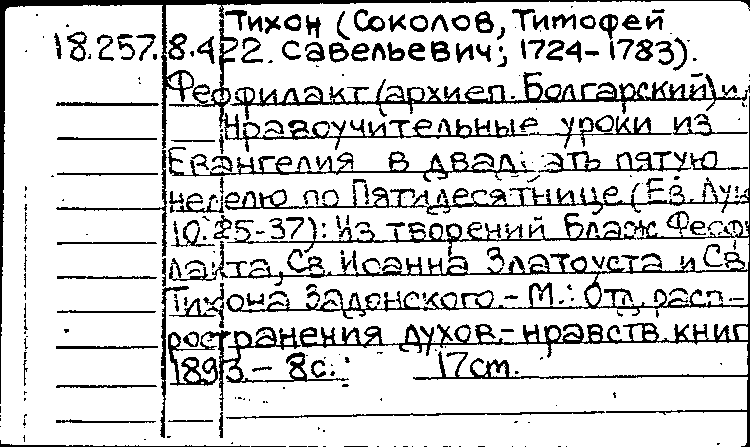 Тихон (Соколов, Тимофей
18.257.8.422. Савельевич; 1724-1783).
Феффилакт (архиеп. Болгарский) и,
Нравоучительные уроки из
Евангелия в двад: ать пятую
неделю по Пятидесятнице (Ев. Лук
10.25-37): Из творений Блаж. Феофи
лакта, Св. Иоанна Златоуста и Св
Тихона Задонского.- М.: Отд. расп-
ространения духов.-нравств. книг
1893.- 8с. 17cm.